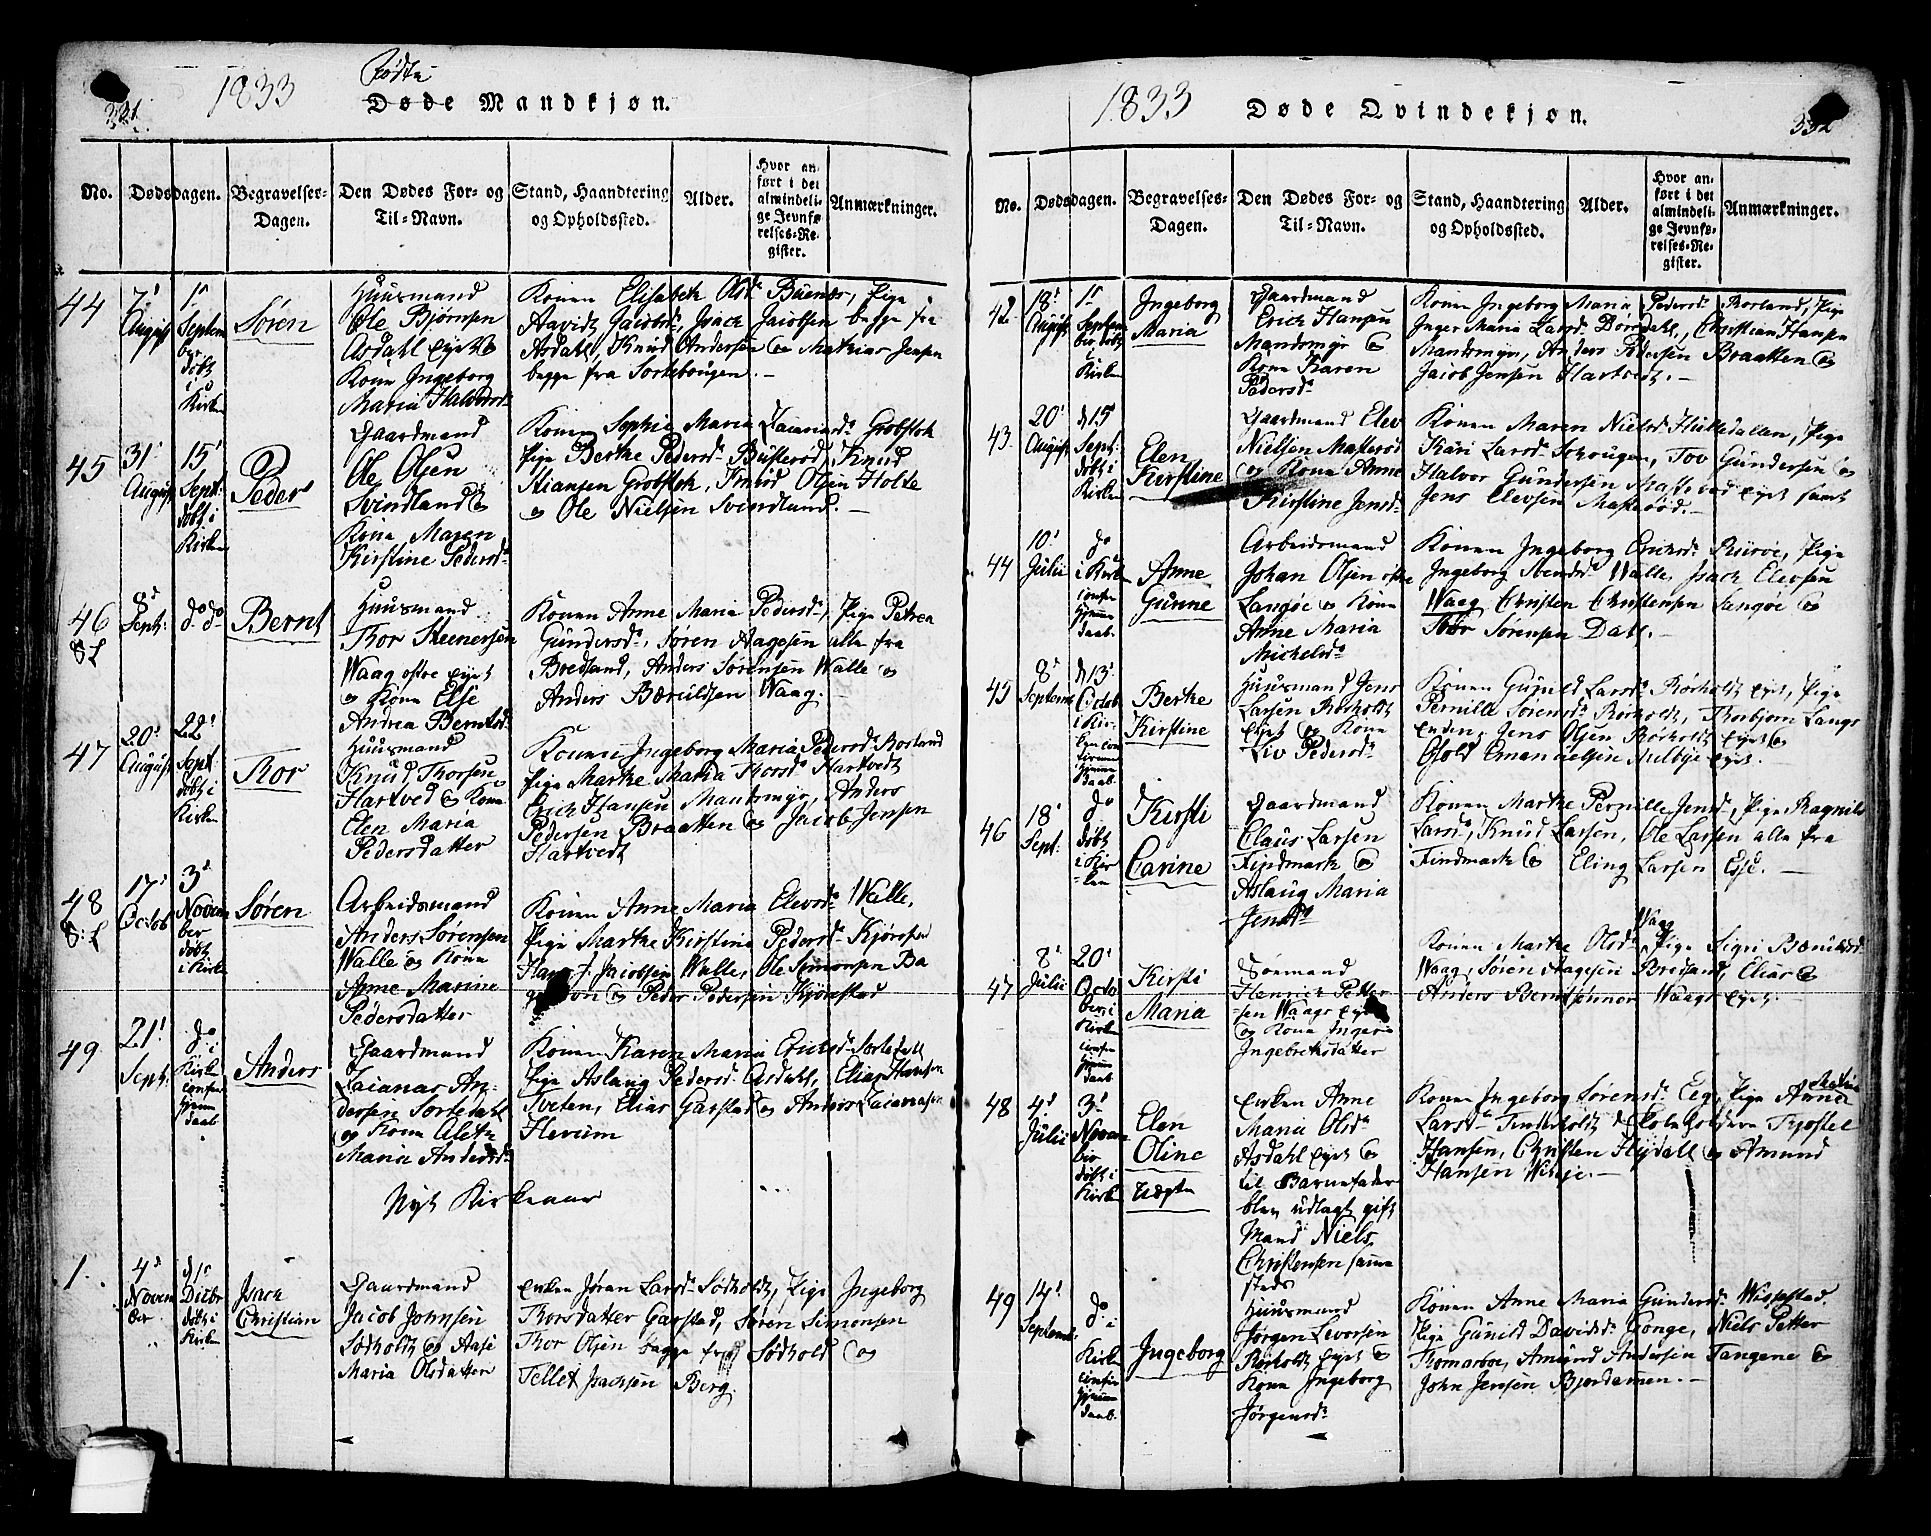 331.
1833
Fødte
Døde Mandkjøn.
No.
Dødsdagen.
Begravelses-
Dagen.
Den Dødes For- og
Til-Navn.
Stand, Haandtering
og Opholdssted.
Alder.
Hvor an-
ført i det
almindeli-
ge Jevnfø-
relses-Re-
gister.
Anmærkninger.
44
7'
August
1'
Septem
ber
døbt
i
Kirken
Søren
Huusmand
Ole Bjørnsen
Asdahl eyet &
Kone Ingeborg
Maria Halvorsd.
Konen Elisabeth Olsd. Buenæs, Pige
Jacobsd, Isach Jacobsen begge fra
Asdahl, Knud Andersen & Mathias Jensen
begge fra Sortebougen.
45
31'
August
15'
Sept:
døbt i
Kirken
Peder
Gaardmand
Ole Olsen
Svindland &
Kone Maren
Kirstine Pedersd.
Konen Sophie Maria Zaiariasd. Grobstok
Pige Berthe Pedersd. Busterød, Knud
Stiansen Grobstok, Olsen Holte
& Ole Nielsen Svindland.
46
8d
Sept:
do do
Bernt
Huusmand
Thor Steenersen
Waag ostre eyet
& Kone Else
Andrea Berntsd.
Konen Anne Maria Pedersd., Pige Petrea
Gundersd., Søren Aagesen alle fra
Bredsand, Anders Sørensen Walle &
Anders Bærulfsen Waag.
47
20'
August
22'
Sept
døbt i
Kirken
Thor
Huusmand
Knud Thorsen
Hartved & Kone
Elen Maria
Pedersdatter
Konen Ingeborg Maria Pedersd. Rorland
Pige Marthe Maria Thorsd. Hartvedt
Erich Hansen Mandsmyr, Anders
Pedersen Braatten & Jacob Jensen
Hartvedt
48
17'
Octob
3'
Novem
ber
døbt
i Kirken
Søren
Arbeidsmand
Anders Sørensen
Walle & Kone
Anne Marine
Pedersdatter
Konen Anne Maria Elevsd. Walle,
Pige Marthe Kirstine Pedersd. Kjørestad
Hans J. Jacobsen Walle, Ole Simonsen
& Peder Pedersen Kjørestad
49
21'
Sept:
do
i
Kirken
confir
hjemme
daab
Anders
Gaardmand
Zaiarias An-
dersen Sortedahl
& Kone Alethe
Maria Andersd.
Konen Karen Maria Ericksd. Sortedall
Pige Aslaug Pedersd. Asdahl, Elias Hansen
Tveten, Elias Garstad & Anders Zaiariasen
Herum
Nyt Kirkeaar
1.
4d
Novem
ber
d 1'
Decbr
døbt i
Kirken
Isach
Christian
Gaardmand
Jacob Johnsen
Sødholdt & Aase
Maria Olsdatter
enken Jøran Larsd. Sødholdt, Pige Ingeborg
Thorsdatter Garstad, Søren Simonsen
Thor Olsen begge fra Sødhold &
Tellef Isachsen Berg.
332
1833
Døde Qvindekjøn.
No.
Dødsdagen.
Begravelses-
Dagen.
Den Dødes For- og
Til-Navn.
Stand, Haandtering
og Opholdssted.
Alder.
Hvor an-
ført i det
almindeli-
ge Jevnfø-
relses-Re-
gister.
Anmærkninger.
42
18'
August
1'
Septem
ber døbt
i
Kirken
Ingeborg
Maria
Gaardmand
Erich Hansen
Mandsmyr &
Kone Karen
Pedersd.
Konen Ingeborg Maria Pedersd. Rorland, Pige
Inger Maria Larsd. Dørsdahl, Christian Hansen
Mandsmyr, Anders Pedersen Braatten &
Jacob Jensen Hartvedt.
43
20'
August
d 15'
Sept:
døbt i
Kirken
Elen
Kirstine
Gaardmand Elev
Nielsen Masterød
& Kone Anne
Kirstine Jensd.
Konen Maren Nielsd. Hulledalen, Pige
Kari Larsd. Skougen, Tov Gundersen &
Halvor Gundersen eyet samt
Jens Elevsen Masterød.
44
10'
Julii
do
i Kirken
confir
hjemme
daab.
Anne
Gunne
Arbeidsmand
Johan Olsen østre
Langøe & Kone
Anne Maria
Michelsd.
Konen Ingeborg Ericksd. Furøe, Pige
Ingeborg Svendsd. Walle, Isach Elevsen
Waag Christen Christensen Langøe &
Thor Sørensen Dahl.
45
8'
Septembr
d 13'
Octob
i Kir-
ken con
firme
hjemme
Daab
Berthe
Kirstine
Huusmand Jens
Larsen Rørholdt
eyet & Kone
Liv Pedersd.
Konen Gunild Larsd. Rørholdt eyet, Pige
Pernille Sørensd. Rørholdt, Thorbjørn Langs
enden, Jens Olsen Rørholt eyet &
Oßold Emanuelsen Aulbye eyet.
46
18'
Sept:
do
døbt
i Kir-
ken
Kirsti
Carine
Gaardmand
Claus Larsen
Findmark &
Aslaug Maria
Jensd.
Konen Marthe Pernille Jensd., Pige Ragnild
Larsd., Knud Larsen, Ole Larsen alle fra
Findmark & Eling Larsen
47
8'
Julii
20'
Octo
ber i
Kirken
confir
hjemme
daab.
Kirsti
Maria
Sømand
Henrich Petter
-sen Waags eyet
& Kone Inger
Ingebrektsdatter
Konen Marthe Olsd. Waag Pige Sigri Bærulfsd.
Waag, Søren Aagesen Bredsand, Elias &
Anders Berntsønner Waags eyet.
48
4d
Julii
3'
Novem
ber
døbt i
Kirken
Elen
Oline
Uægte
enken Anne
Maria Olsd.
Asdahl eyet &
til Barnefader
blev udlagt gift
Mand Niels
Christensen samme
steds
Konen Ingeborg Sørensd. Eeg, Pige Anne Maria
Larsd. Findholdt, Skoleholdere Kjøstel
Hansen, Christen Flydall & Amund
Hansen Wisse.
49
14'
Septembr
do
i
Kirken
confir
hjemme
daab.
Ingeborg
Huusmand
Jørgen Levorsen
Rørholdt eyet &
Kone Ingeborg
Jørgensd.
Konen Anne Maria Gundersd. Wissestad.
Pige Gunild Davidsd. Gonge, Niels Petter
Thomarboe, Amund Andersen Tangene &
John Jensen Bjordamen.